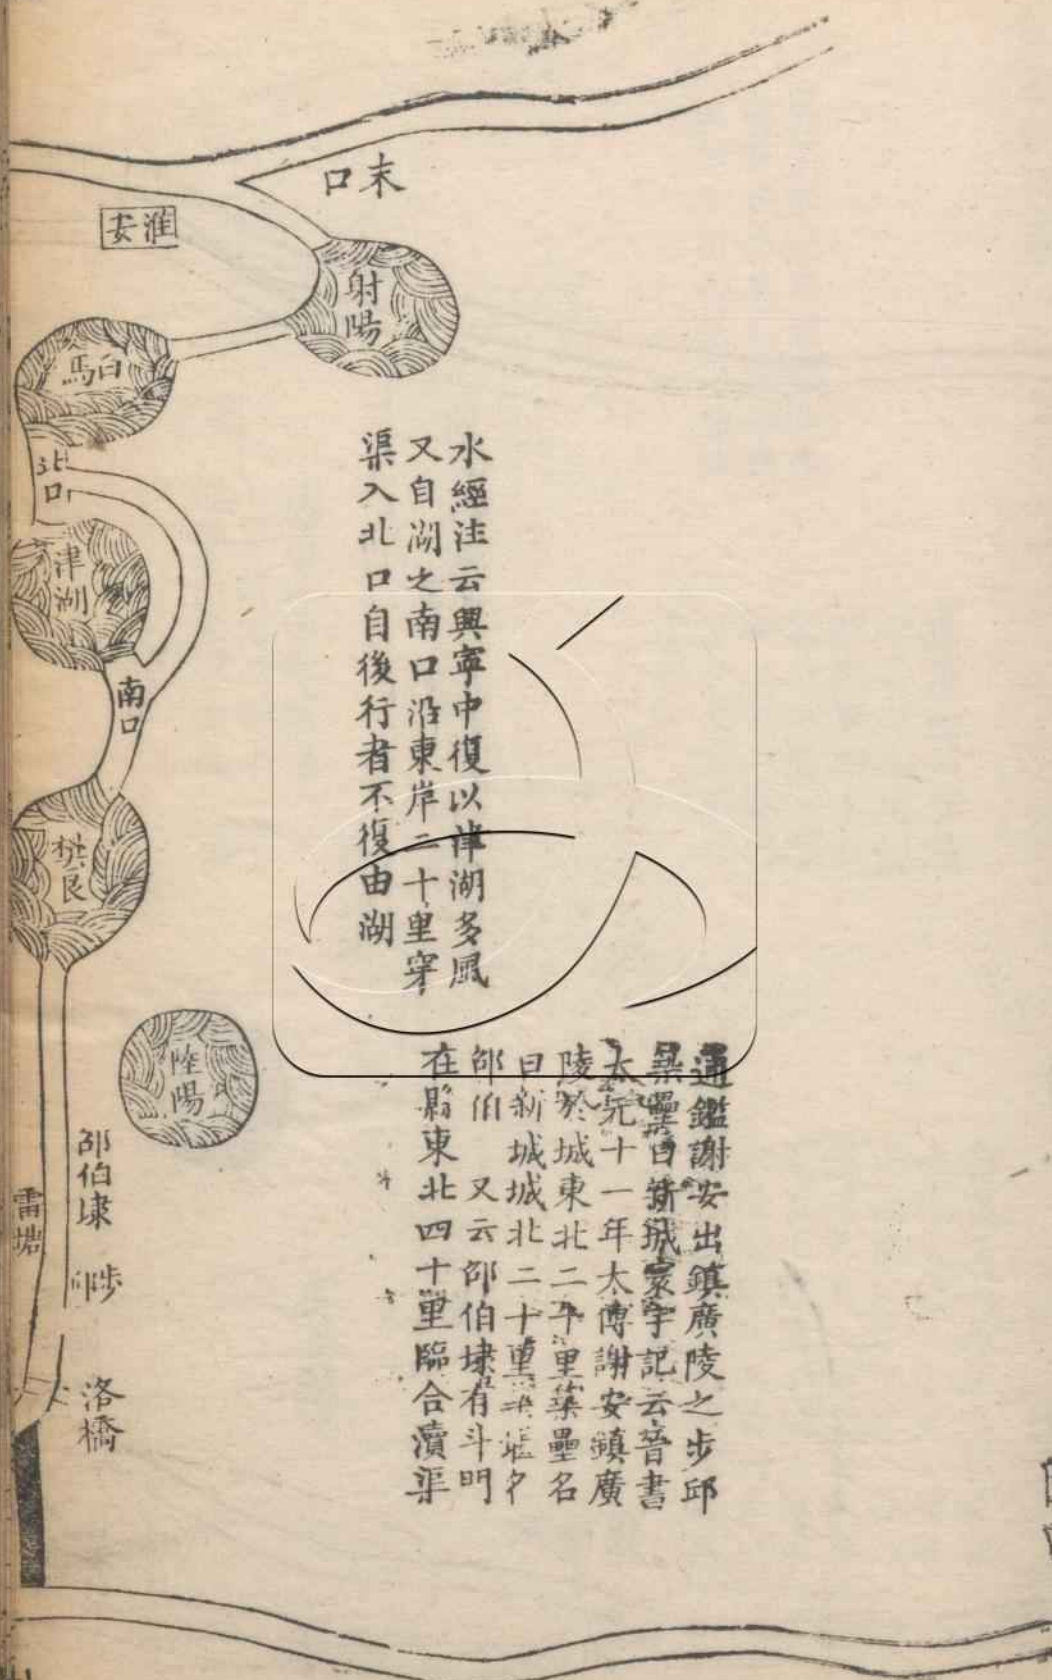 末口
淮安
射陽
白馬
北口
津湖
南口
樊良
陸陽
邵伯埭
雷塘
步
洛橋
水經注云興寧中復以津湖多風
又自湖之南口沿東岸二十里穿
渠入北口自後行者不復由湖
通鑑謝安出鎮廣陵之步邱
築壘曰新城寰宇記云晉書
太元十一年太傅謝安鎮廣
陵於城東北二十里築壘名
曰新城城北二十里 堰名
邵伯 又云邵伯埭有斗門
在縣東北四十里臨合瀆渠